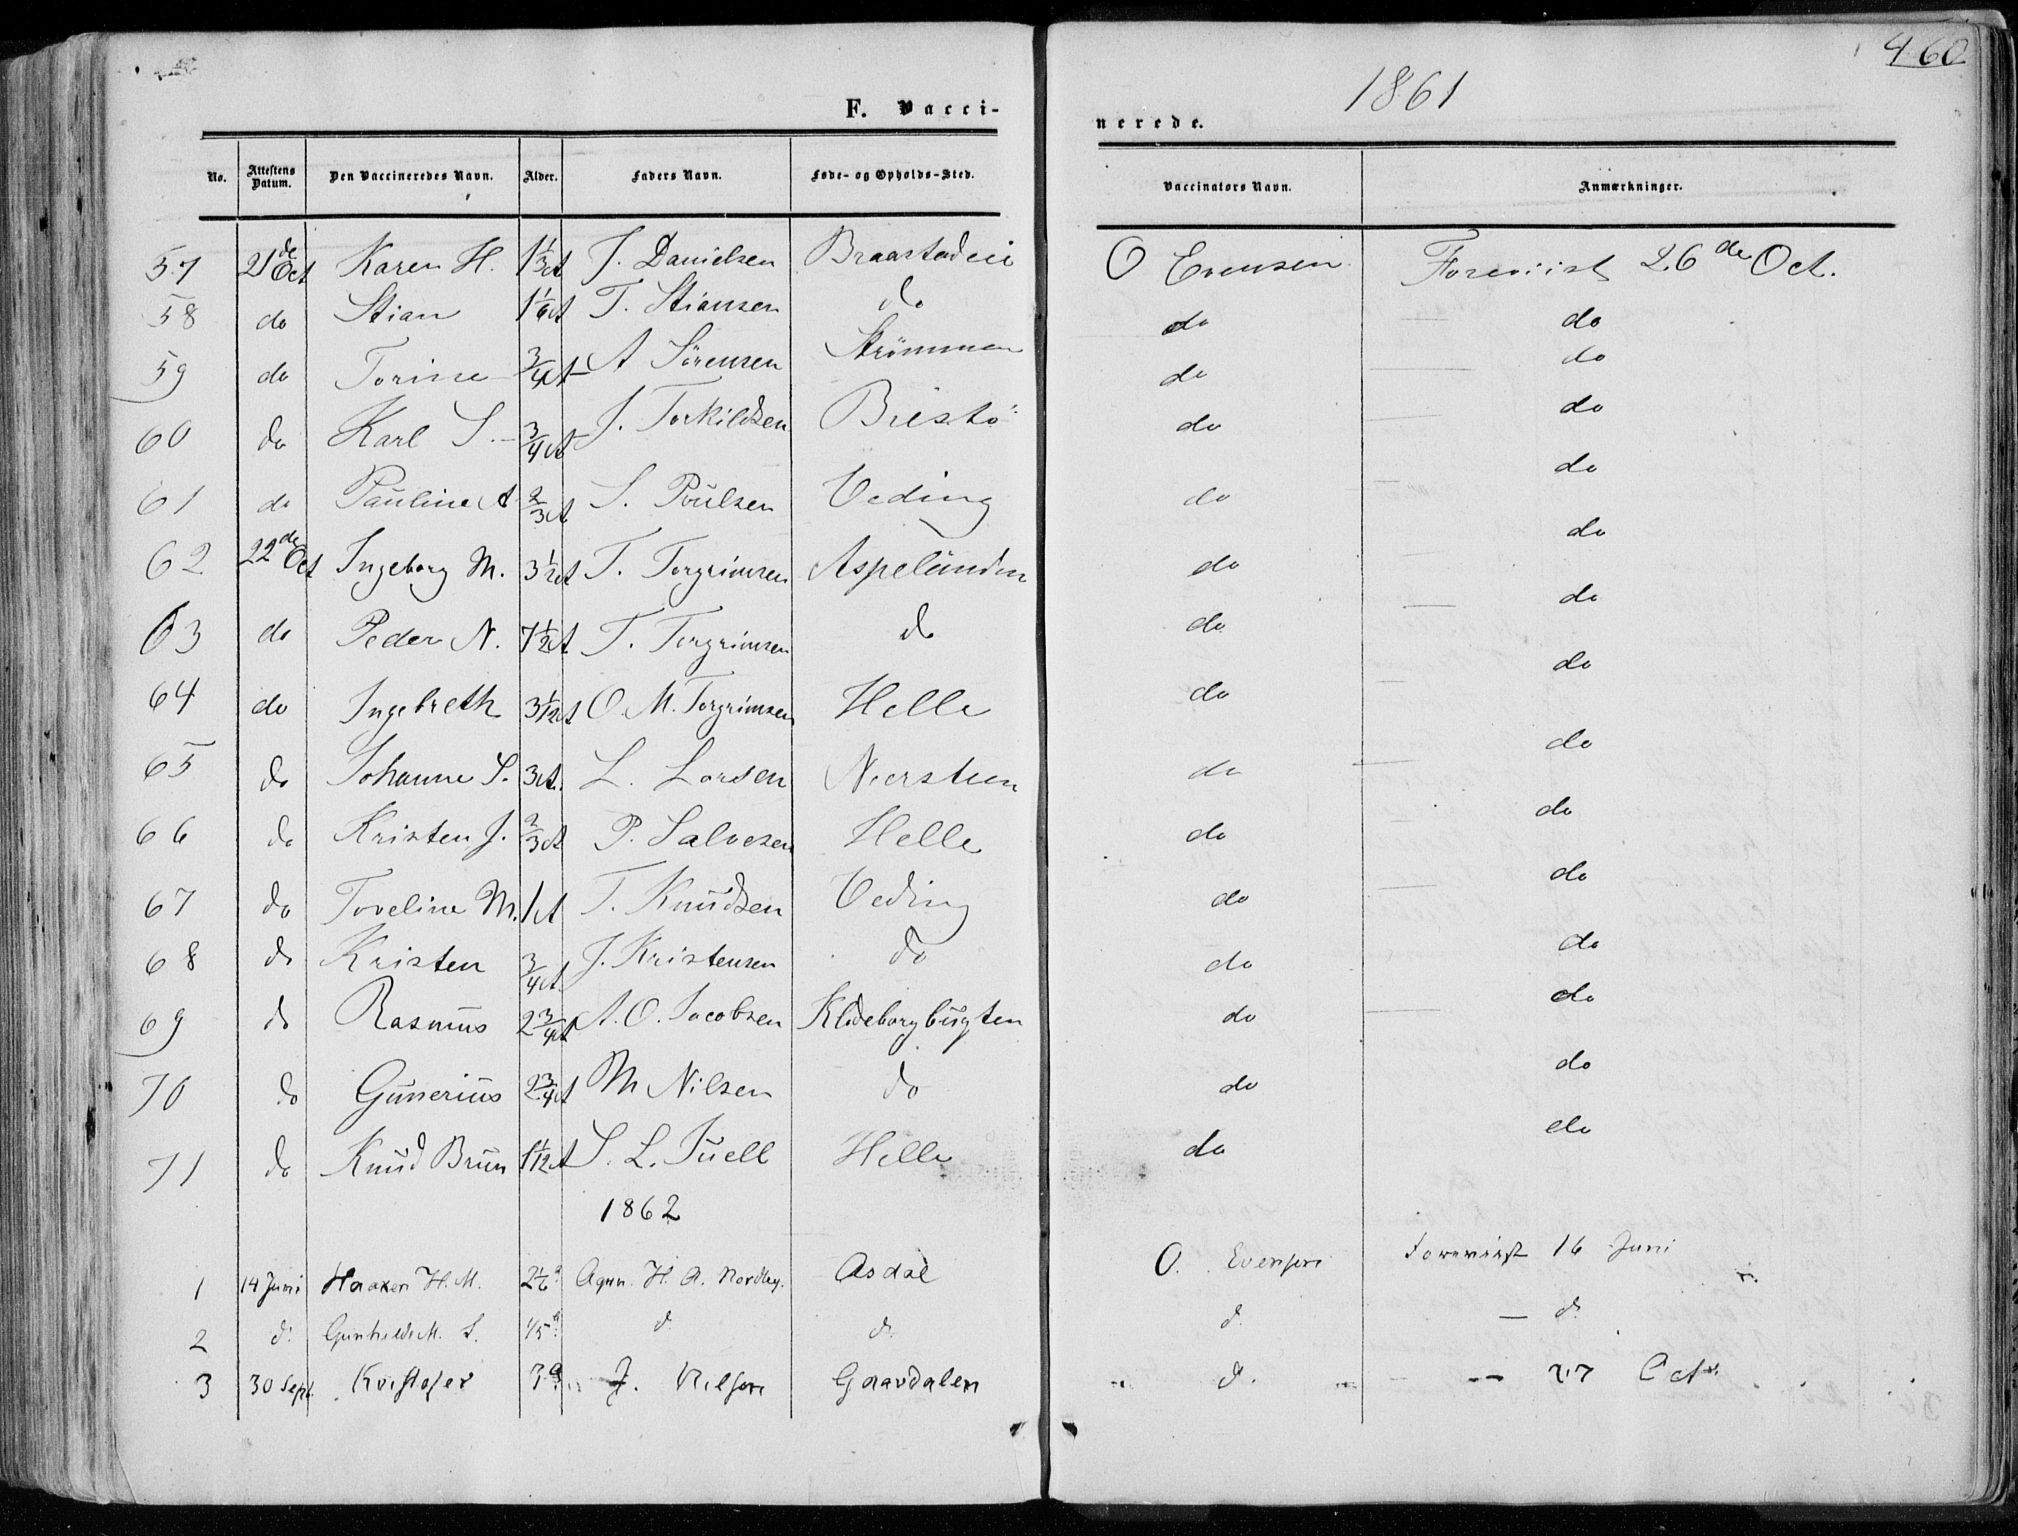 460
1861
F. Vacci-
nerede.
No. Attestens Datum. Den Vaccineredes Navn. Alder. Faders Navn. Føde- og Opholds-Sted. Vaccinators Navn. Anmærkninger.
57 21de Oct Karen H. 1 1/3 A J. Danielsen Braastadeie O Evensen Foreviist 26de Oct.
58 do Stian 1 1/6 A T. Stiansen do do do
59 do Torine 3/4 A A Sörensen Strømmen do do
60 do Karl S. 3/4 A J. Torkildsen Biestö do do
61 do Pauline A 2/3 A S. Poulsen Veding do do
62 22de Oct Ingeborg M. 3 1/2 A T. Torgrimsen Aspelunden do do
63 do Peder N. 7 1/2 A T. Torgrimsen do do do
64 do Ingebreth 3 1/12 A O. M. Torgrimsen Helle do do
65 do Johanne S. 3 A. L. Larsen Nersteen do do
66 do Kristen J. 2/3 A P. Salvesen Helle do do
67 do Toveline M. 1 A T. Knudsen Veding do do
68 do Kristen 3/4 A J. Kristensen do do do
69 do Rasmus 2 3/4 A A. O. Jacobsen Kldeborgbugten do do
70 do Gunerius 2 3/4 A M Nilsen do do do
71 do Knud Brun 1 1/12 A S. L. Tuell Helle do do
1862
1 14 Juni Haaken H. M. 2 1/6 a H. A. Asdal O. Evensen Foreviist 16 Juni
2 d. Gunhilde M. S. 1/5 a d. d. d. — d.
3 30 Sept. Kristofer 3 a J. Nilsen Gaardalen d. — 27 Octr.